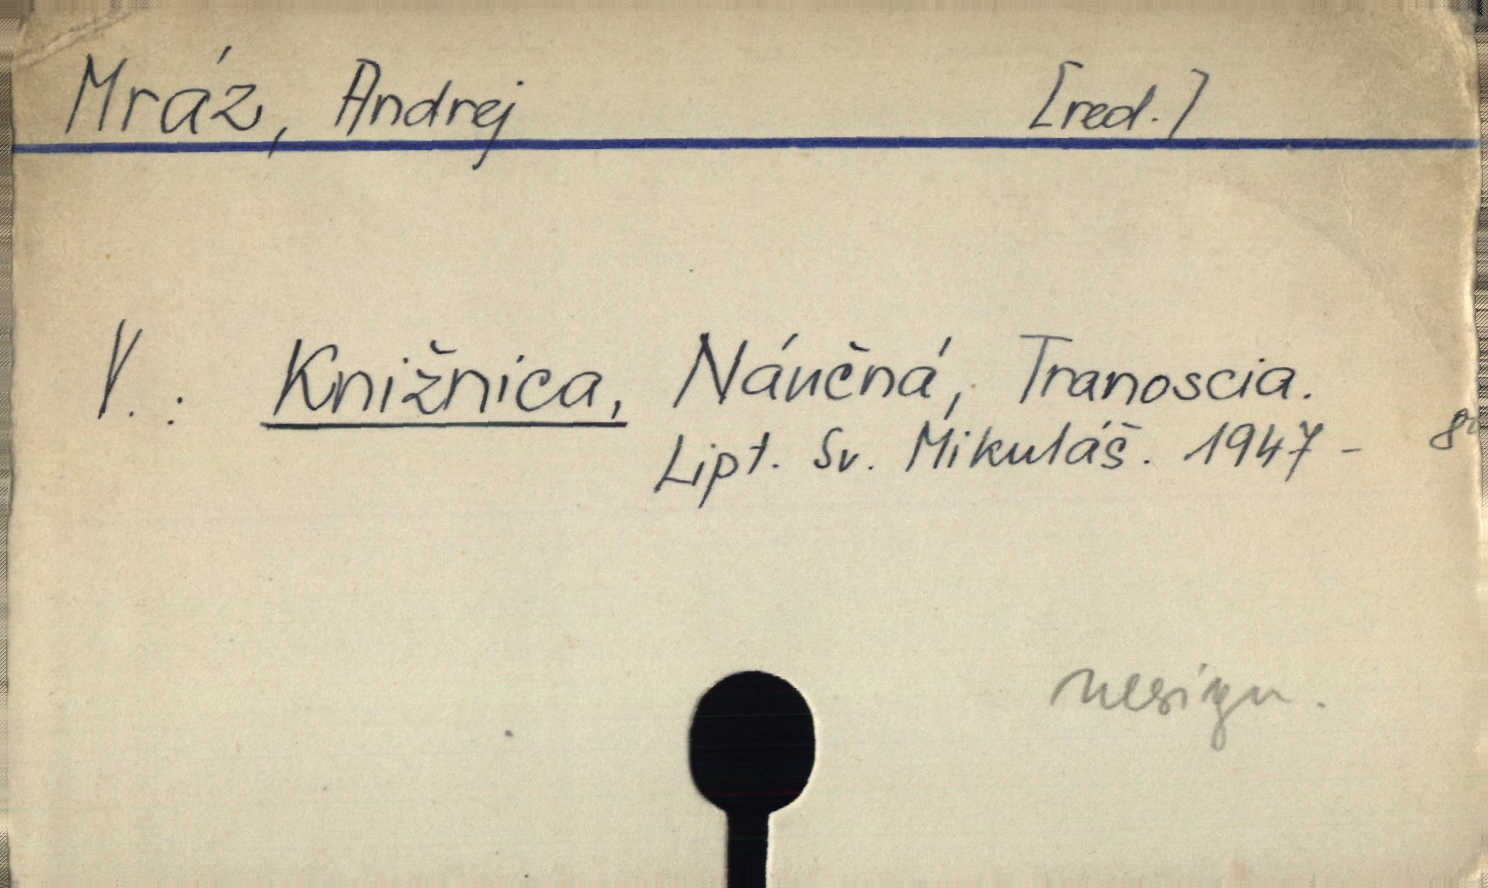 Mráz, Andrej [red.]
V.: Knižnica, Náučná, Tranoscia.
Lipt. Sv. Mikuláš. 1947 - 8°
nesign.